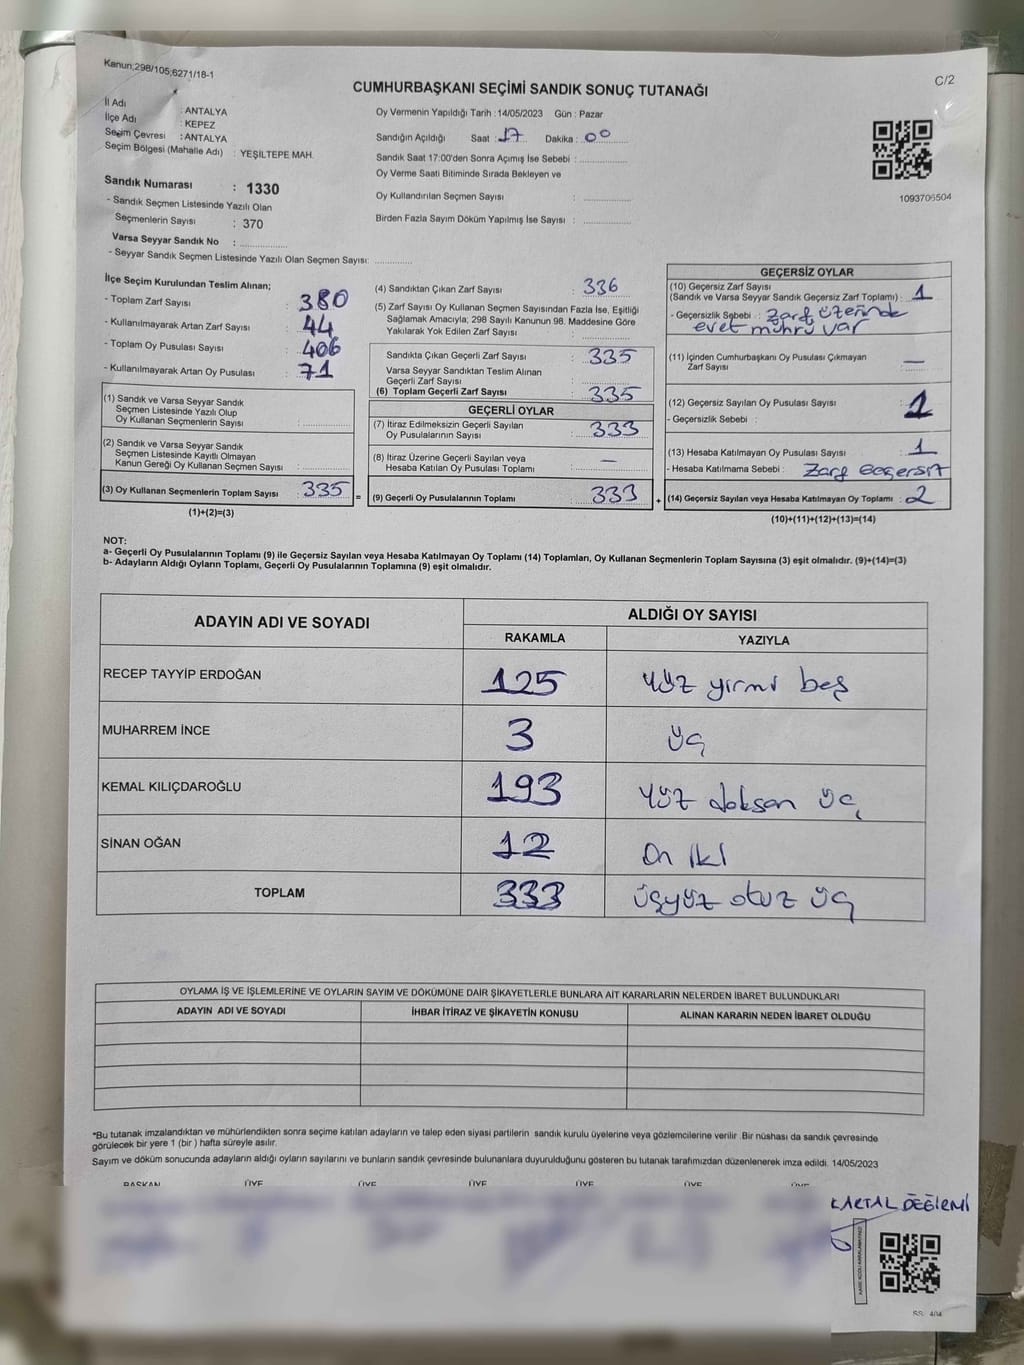 Kanun;298/105;6271/18-1
C/2
CUMHURBAŞKANI SEÇİMİ SANDIK SONUÇ TUTANAĞI
İl Adı : ANTALYA
İlçe Adı : KEPEZ
Seçim Çevresi : ANTALYA
Seçim Bölgesi (Mahalle Adı) : YEŞİLTEPE MAH.
Oy Vermenin Yapıldığı Tarih :14/05/2023 Gün : Pazar
Sandığın Açıldığı Saat : 17 Dakika : 00
Sandık Saat 17:00'den Sonra Açımış İse Sebebi : ..............
Oy Verme Saati Bitiminde Sırada Bekleyen ve
Oy Kullandırılan Seçmen Sayısı : ..............
Birden Fazla Sayım Döküm Yapılmış İse Sayısı : ..............
1093706504
Sandık Numarası : 1330
- Sandık Seçmen Listesinde Yazılı Olan
Seçmenlerin Sayısı : 370
Varsa Seyyar Sandık No : ..............
- Seyyar Sandık Seçmen Listesinde Yazılı Olan Seçmen Sayısı: ..............
İlçe Seçim Kurulundan Teslim Alınan;
- Toplam Zarf Sayısı : 380
- Kullanılmayarak Artan Zarf Sayısı : 44
- Toplam Oy Pusulası Sayısı : 406
- Kullanılmayarak Artan Oy Pusulası : 71
(1) Sandık ve Varsa Seyyar Sandık
Seçmen Listesinde Yazılı Olup
Oy Kullanan Seçmenlerin Sayısı : ..............
(2) Sandık ve Varsa Seyyar Sandık
Seçmen Listesinde Kayıtlı Olmayan
Kanun Gereği Oy Kullanan Seçmen Sayısı : ..............
(3) Oy Kullanan Seçmenlerin Toplam Sayısı : 335 =
(1)+(2)=(3)
(4) Sandıktan Çıkan Zarf Sayısı : 336
(5) Zarf Sayısı Oy Kullanan Seçmen Sayısından Fazla İse, Eşitliği
Sağlamak Amacıyla, 298 Sayılı Kanunun 98. Maddesine Göre
Yakılarak Yok Edilen Zarf Sayısı : ..............
Sandıkta Çıkan Geçerli Zarf Sayısı : 335
Varsa Seyyar Sandıktan Teslim Alınan
Geçerli Zarf Sayısı : ..............
(6) Toplam Geçerli Zarf Sayısı : 335
GEÇERLİ OYLAR
(7) İtiraz Edilmeksizin Geçerli Sayılan
Oy Pusulalarının Sayısı : 333
(8) İtiraz Üzerine Geçerli Sayılan veya
Hesaba Katılan Oy Pusulası Toplamı : —
(9) Geçerli Oy Pusulalarının Toplamı : 333 +
GEÇERSİZ OYLAR
(10) Geçersiz Zarf Sayısı
(Sandık ve Varsa Seyyar Sandık Geçersiz Zarf Toplamı) : 1
- Geçersizlik Sebebi : Zarf üzerinde
evet mührü var
(11) İçinden Cumhurbaşkanı Oy Pusulası Çıkmayan
Zarf Sayısı : —
(12) Geçersiz Sayılan Oy Pusulası Sayısı : 1
- Geçersizlik Sebebi :
(13) Hesaba Katılmayan Oy Pusulası Sayısı : 1
- Hesaba Katılmama Sebebi : Zarf Geçersiz
(14) Geçersiz Sayılan veya Hesaba Katılmayan Oy Toplamı : 2
(10)+(11)+(12)+(13)=(14)
NOT:
a- Geçerli Oy Pusulalarının Toplamı (9) ile Geçersiz Sayılan veya Hesaba Katılmayan Oy Toplamı (14) Toplamları, Oy Kullanan Seçmenlerin Toplam Sayısına (3) eşit olmalıdır. (9)+(14)=(3)
b- Adayların Aldığı Oyların Toplamı, Geçerli Oy Pusulalarının Toplamına (9) eşit olmalıdır.
ADAYIN ADI VE SOYADI
ALDIĞI OY SAYISI
RAKAMLA YAZIYLA
RECEP TAYYİP ERDOĞAN 125 yüz yirmi beş
MUHARREM İNCE 3 üç
KEMAL KILIÇDAROĞLU 193 yüz doksan üç
SİNAN OĞAN 12 on iki
TOPLAM 333 üçyüz otuz üç
OYLAMA İŞ VE İŞLEMLERİNE VE OYLARIN SAYIM VE DÖKÜMÜNE DAİR ŞİKAYETLERLE BUNLARA AİT KARARLARIN NELERDEN İBARET BULUNDUKLARI
ADAYIN ADI VE SOYADI İHBAR İTİRAZ VE ŞİKAYETİN KONUSU ALINAN KARARIN NEDEN İBARET OLDUĞU
*Bu tutanak imzalandıktan ve mühürlendikten sonra seçime katılan adayların ve talep eden siyasi partilerin sandık kurulu üyelerine veya gözlemcilerine verilir .Bir nüshası da sandık çevresinde
görülecek bir yere 1 (bir ) hafta süreyle asılır.
Sayım ve döküm sonucunda adayların aldığı oyların sayılarını ve bunların sandık çevresinde bulunanlara duyurulduğunu gösteren bu tutanak tarafımızdan düzenlenerek imza edildi. 14/05/2023
BAŞKAN ÜYE ÜYE ÜYE ÜYE ÜYE ÜYE
KARTAL DEĞİRMİ